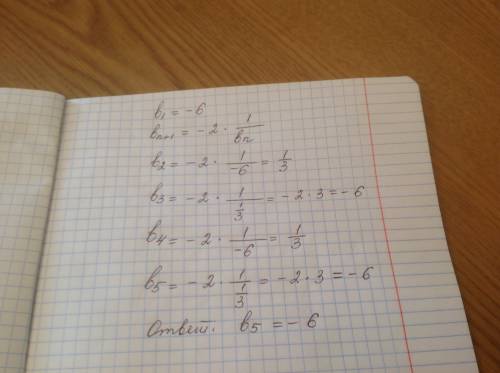 b₁ = -6
bₙ₊₁ = -2 · 1/bₙ
b₂ = -2 · 1/-6 = 1/3
b₃ = -2 · 1/(1/3) = -2 · 3 = -6
b₄ = -2 · 1/-6 = 1/3
b₅ = -2 · 1/(1/3) = -2 · 3 = -6
Ответ: b₅ = -6